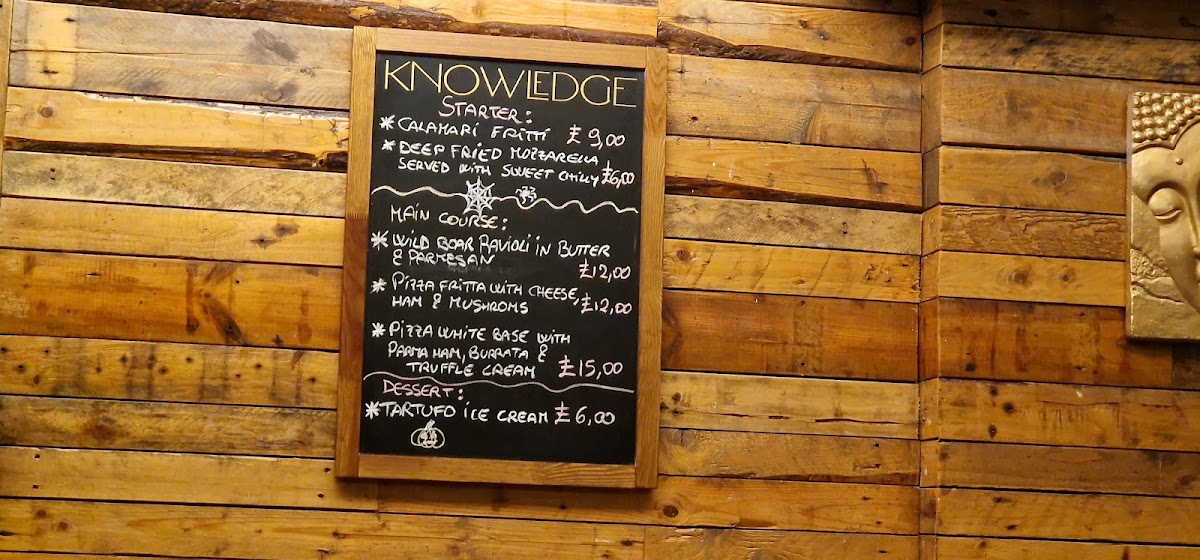 KNOWLEDGE
STARTER:
* CALAMARI FRITTI £ 9,00
* DEEP FRIED MOZZARELLA
SERVED WITH SWEET CHILLY £6,00
MAIN COURSE:
* WILD BOAR RAVIOLI IN BUTTER
& PARMESAN £12,00
* PIZZA FRITTA WITH CHEESE,
HAM & MUSHROMS £12,00
* PIZZA WHITE BASE WITH
PARMA HAM, BURRATA &
TRUFFLE CREAM £15,00
DESSERT:
* TARTUFO ICE CREAM £ 6,00